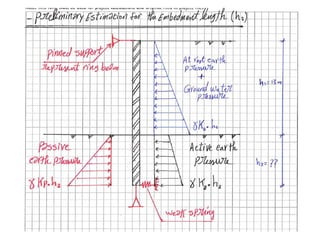 - Preliminary Estimation for the Embedment length (h2)
pinned support
represent ring beam
At rest earth
pressure
+
Ground water
pressure
h1=13m
γ K0 . h1
Passive
earth pressure
Active earth
pressure
h2= ??
γ Kp. h2
γ Ka. h2
weak spring